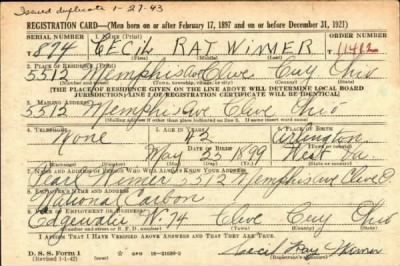 Issued duplicate 1-27-43
REGISTRATION CARD—(Men born on or after February 17, 1897 and on or before December 31, 1921)
SERIAL NUMBER 1. NAME (Print) ORDER NUMBER
874 CECIL RAY WIMER 11412
(First) (Middle) (Last)
2. PLACE OF RESIDENCE (Print)
5512 Memphis Ave Cleve Cuy Ohio
(Number and street) (Town, township, village, or city) (County) (State)
[THE PLACE OF RESIDENCE GIVEN ON THE LINE ABOVE WILL DETERMINE LOCAL BOARD
JURISDICTION; LINE 2 OF REGISTRATION CERTIFICATE WILL BE IDENTICAL]
3. MAILING ADDRESS
5512 Memphis Ave Cleve Ohio
[Mailing address if other than place indicated on line 2. If same insert word same]
4. TELEPHONE 5. AGE IN YEARS 6. PLACE OF BIRTH
None 43 Arlington
DATE OF BIRTH (Town or county)
May 25 1899 West Va.
(Mo.) (Day) (Yr.) (State or country)
7. NAME AND ADDRESS OF PERSON WHO WILL ALWAYS KNOW YOUR ADDRESS
Wimer 5512 Memphis Ave Cleve O
8. EMPLOYER'S NAME AND ADDRESS
National Carbon
9. PLACE OF EMPLOYMENT OR BUSINESS
Edgewater W. 74 Cleve Cuy Ohio
(Number and street or R. F. D. number) (Town) (County) (State)
I AFFIRM THAT I HAVE VERIFIED ABOVE ANSWERS AND THAT THEY ARE TRUE.
D. S. S. Form 1
(Revised 1-1-42) (over) GPO 16-21630-2 Cecil Ray Wimer
(Registrant's signature)